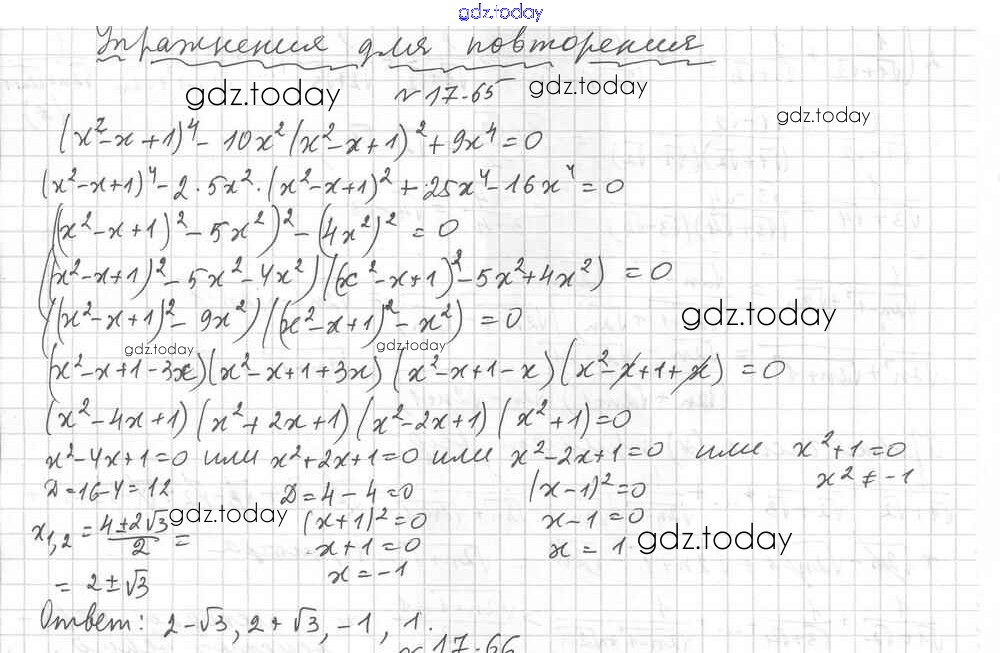 gdz.today
Упражнения для повторения
gdz.today № 17.65 gdz.today
gdz.today
(x²-x+1)⁴ - 10x²(x²-x+1)² + 9x⁴ = 0
(x²-x+1)⁴ - 2·5x²·(x²-x+1)² + 25x⁴ - 16x⁴ = 0
((x²-x+1)² - 5x²)² - (4x²)² = 0
((x²-x+1)² - 5x² - 4x²)((x²-x+1)² - 5x² + 4x²) = 0
((x²-x+1)² - 9x²)((x²-x+1)² - x²) = 0 gdz.today
gdz.today gdz.today
(x²-x+1-3x)(x²-x+1+3x)(x²-x+1-x)(x²-x+1+x) = 0
(x²-4x+1)(x²+2x+1)(x²-2x+1)(x²+1) = 0
x²-4x+1=0 или x²+2x+1=0 или x²-2x+1=0 или x²+1=0
Д=16-4=12 Д=4-4=0 (x-1)²=0 x²≠-1
x₁,₂ = (4±2√3)/2 = gdz.today (x+1)²=0 x-1=0
x+1=0 x=1 gdz.today
= 2±√3 x=-1
Ответ: 2-√3, 2+√3, -1, 1.
№ 17.66